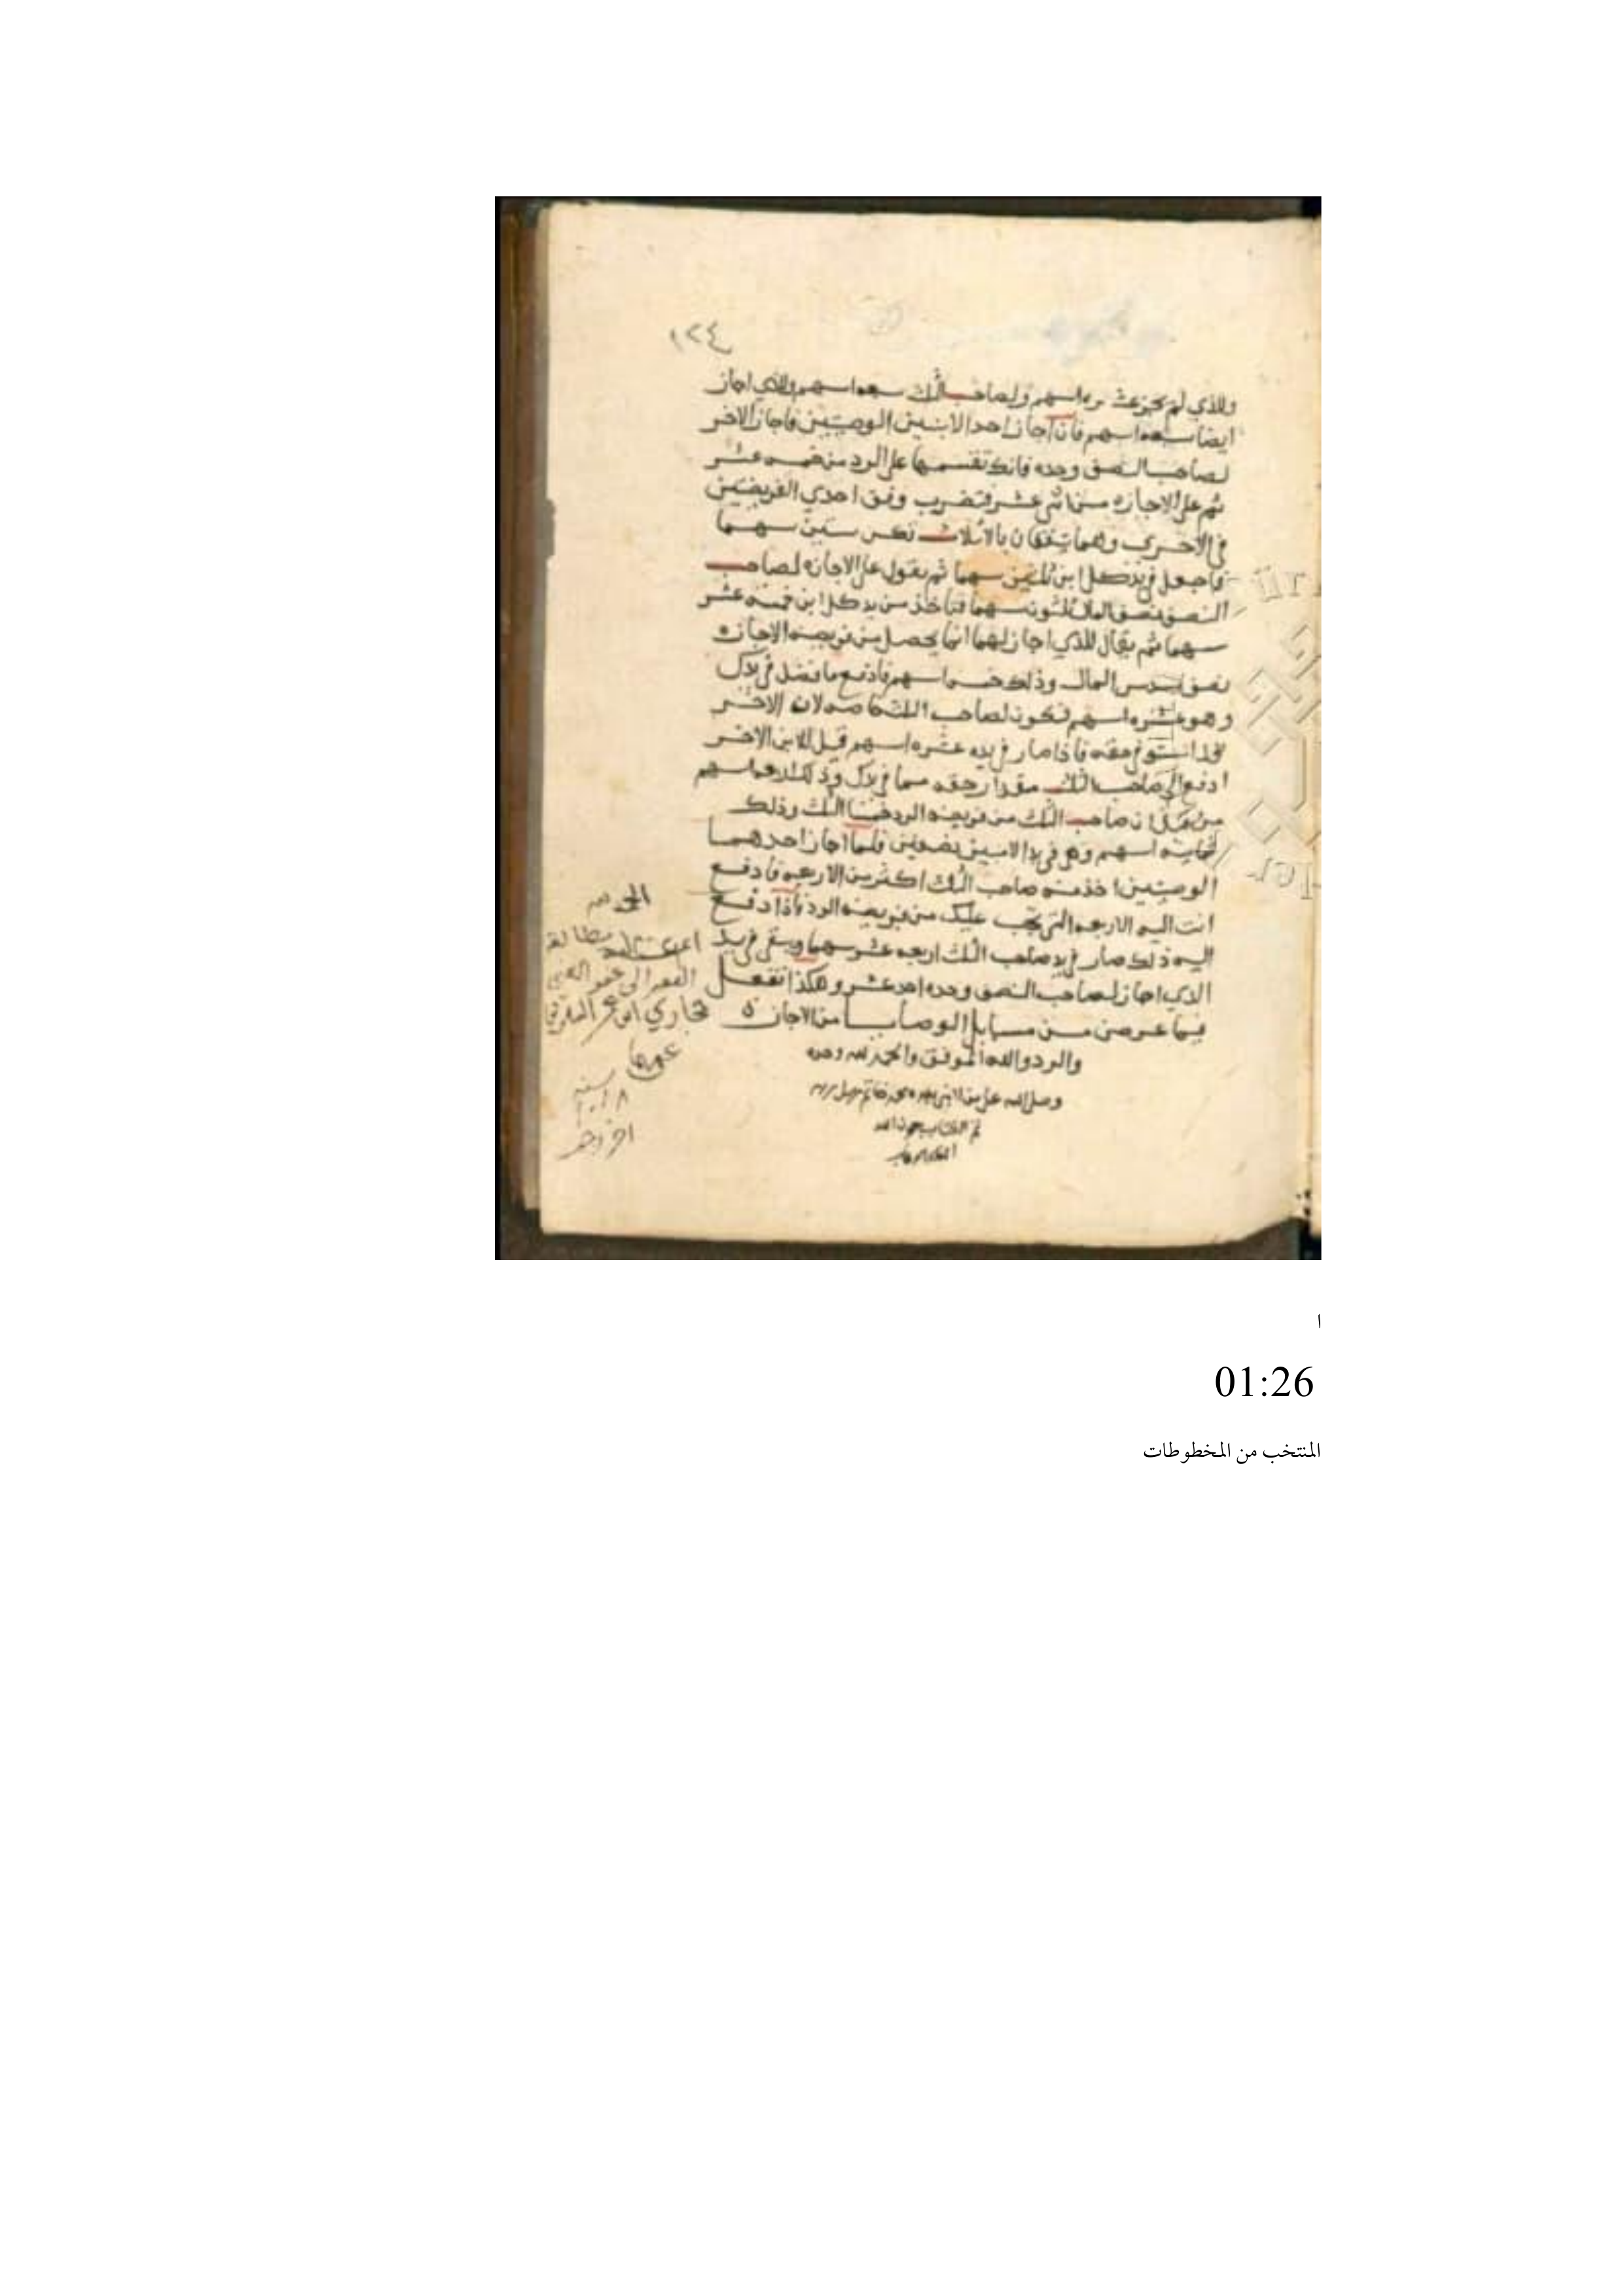 ١٢٤
وللذي لم يجز عشره اسهم ولصاحب الثلث سبعه اسهم وللذي اجاز
ايضا سبعه اسهم فان اجاز احد الابنين الوصيتين فاجاز الاخر
لصاحب النصف وحده فانك تقسمها على الرد من خمسه عشر
ثم على الاجازه من اثنى عشر فتضرب وفق احدي الفريضتين
في الاخرى وهما يتفقان بالاثلاث تكن ستين سهما
فاجعل في يد كل ابن ثلثين سهما ثم نقول على الاجازه لصاحب
النصف نصف المال ثلثون سهما فتاخذ من يد كل ابن خمسه عشر
سهما ثم يقال للذي اجاز لهما انما يحصل من فريضه الاجازه
نصف سدس المال وذلك خمسه اسهم فادفع ما فضل في يدك
وهو عشره اسهم فتكون لصاحب الثلث خاصه لان الاخر
قد استوفى حقه فاذا صار في يده عشره اسهم قيل للابن الاخر
ادفع الى صاحب الثلث مقدار حقه مما في يدك وذلك اربعه اسهم
من قبل ان صاحب الثلث من فريضه الرد خمسا الثلث وذلك
ثمانيه اسهم وهي في يد الابنين نصفين فلما اجاز احدهما
الوصيتين اخذ منه صاحب الثلث اكثر من الاربعه فادفع
انت اليه الاربعه التي تجب عليك من فريضه الرد فاذا دفع
اليه ذلك صار في يد صاحب الثلث اربعه عشر سهما ويبقى في يد
الذي اجاز لصاحب النصف وحده احد عشر وهكذا تفعل
فيما عرض من مسايل الوصايا من الاجازه
والرد والله الموفق والحمد لله وحده
وصلى الله على من لا نبي بعده محمد خاتم
تم الكتاب بحمد الله
الحمد لله
مطالعة
الفقير الى عفو الغني
عفي عنهما
سنه
ا
01:26
المنتخب من المخطوطات